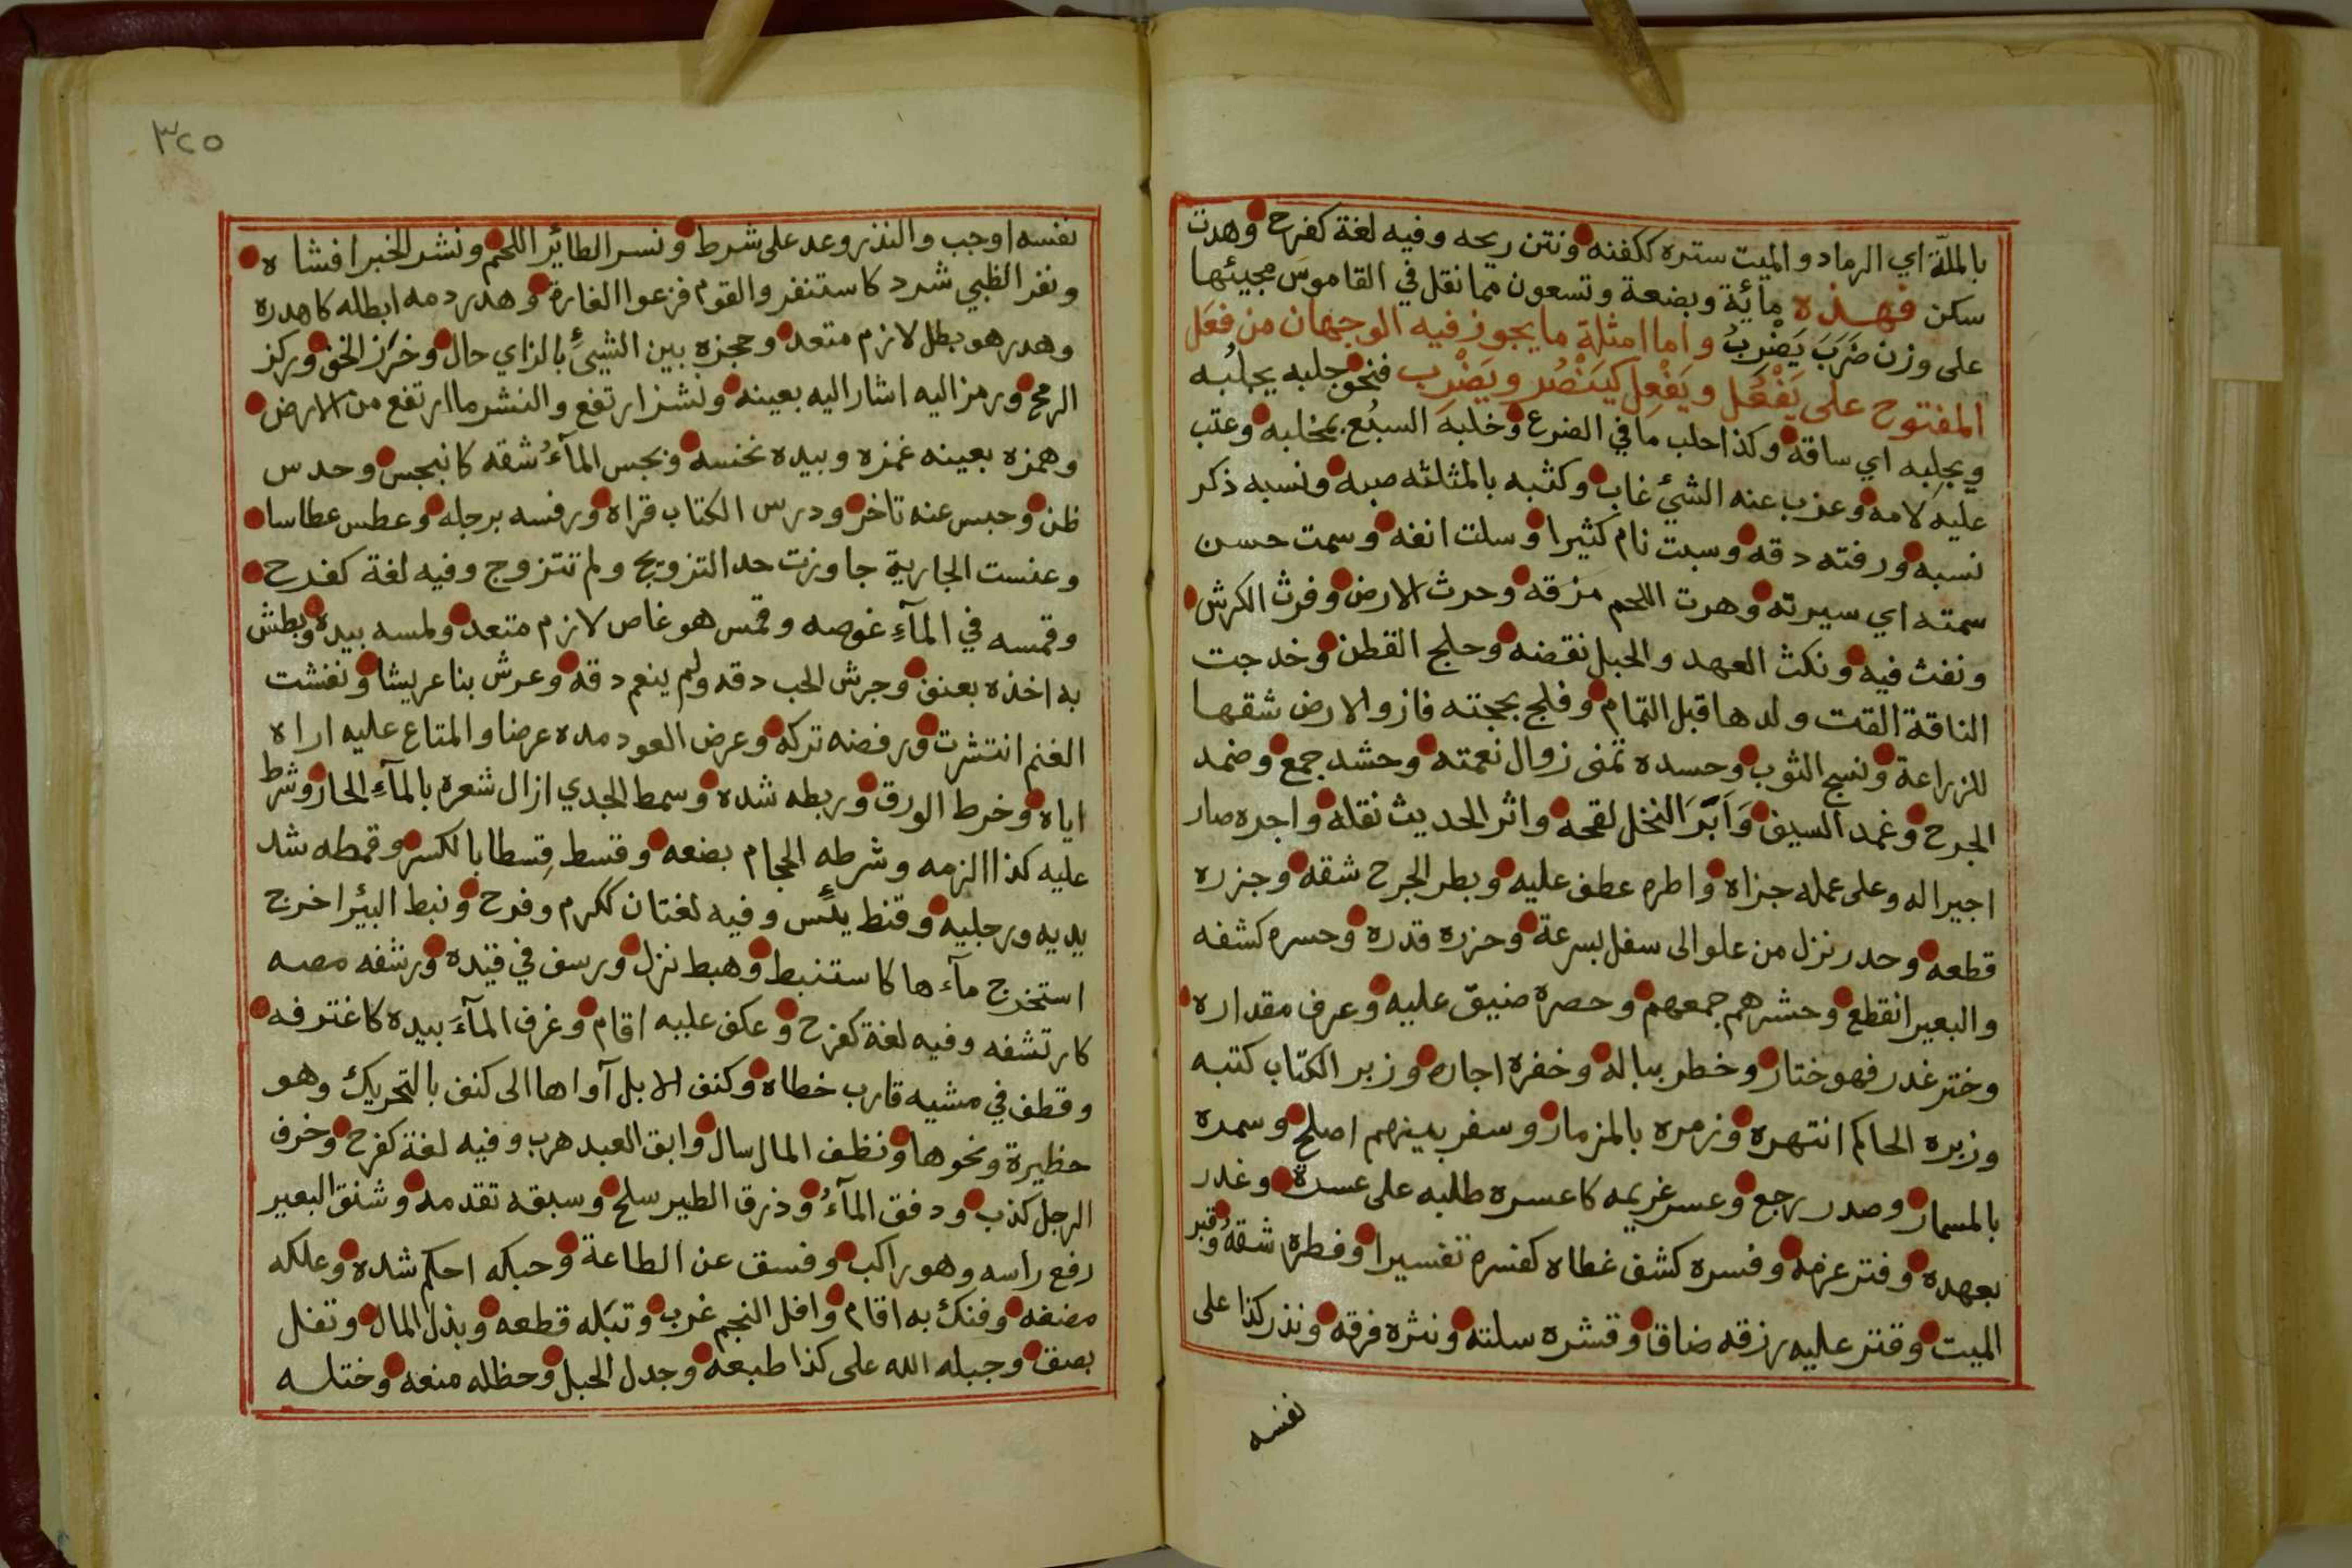 بالملّة اي الرماد والميت ستره ككفنه ونتن ريحه وفيه لغة كفرح وهدن
سكن فهذه مائة وبضعة وتسعون مما نقل في القاموس مجيئها
على وزن ضَرَبَ يَضْرِبُ واما امثلة ما يجوز فيه الوجهان من فعَل
المفتوح على يَفْعُل ويَفْعِل كيَنْصُر ويَضْرِب فنحو جلبه يجلُبه
ويجلِبه اي ساقه وكذا حلب ما في الضرع وخلبه السبُع بمخلبه وعتب
عليه لامه وعزب عنه الشئ غاب وكثبه بالمثلثه صبه ونسبه ذكر
نسبه ورفته دقه وسبت نام كثيرا وسلت انفه وسمت حسن
سمته اي سيرته وهرت اللحم مزقه وحرث الارض وفرث الكرش
ونفث فيه ونكث العهد والحبل نقضه وحلج القطن وخدجت
الناقة القت ولدها قبل التمام وفلج بحجته فاز والارض شقها
للزراعة ونسج الثوب وحسده تمنى زوال نعمته وحشد جمع وضمد
الجرح وغمد السيف وَاَبَرَ النخل لقحه واثر الحديث نقله واجره صار
اجيرا له وعلى عمله جزاه واطره عطف عليه وبطر الجرح شقه وجزره
قطعه وحدر نزل من علو الى سفل بسرعة وحزره قدره وحسره كشفه
والبعير انقطع وحشرهم جمعهم وحصره ضيق عليه وعرف مقداره
وختر غدر فهو ختار وخطر بباله وخفره اجاره وزبر الكتاب كتبه
وزبره الحاكم انتهره وزمره بالمزمار وسفر بينهم اصلح وسمره
بالمسمار وصدر رجع وعسر غريمه كاعسره طلبه على عسرة وغدر
بعهده وفتر عزمه وفسره كشف غطاه كفسره تفسيرا وفطره شقه وقبر
الميت وقتر عليه رزقه ضاق وقشره سلته ونثره فرقه ونذر كذا على
نفسه
٣٢٥
نفسه اوجب والنذر وعد على شرط ونسر الطائر اللحم ونشر الخبر افشاه
ونفر الظبي شرد كاستنفر والقوم فزعوا الغارة وهدر دمه ابطله كاهدره
وهدر هو بطل لازم متعد وحجزه بين الشيئ بالزاي حال وخرز الخف وركز
الرمح ورمز اليه اشار اليه بعينه ونشز ارتفع والنشز ما ارتفع من الارض
وهمزه بعينه غمزه وبيده نخسه وبجس المآءُ شقه كانبجس وحدس
ظن وحبس عنه تاخر ودرس الكتاب قراه ورفسه برجله وعطس عطاسا
وعنست الجارية جاوزت حد التزويج ولم تتزوج وفيه لغة كفرح
وقمسه في المآءِ غوصه وقمس هو غاص لازم متعد ولمسه بيده وبطش
به اخذه بعنف وجرش الحب دقه ولم ينعم دقه وعرش بنا عريشا ونفشت
الغنم انتشرت ورفضه تركه وعرض العود مده عرضا والمتاع عليه اراه
اياه وخرط الورق وربطه شده وسمط الجدي ازال شعره بالمآءِ الحار وشرط
عليه كذا الزمه وشرطه الحجام بضعه وقسط قِسطا بالكسر وقمطه شد
يديه ورجليه وقنط يئس وفيه لغتان ككرم وفرح ونبط البئر اخرج
استخرج مآءها كاستنبط وهبط نزل ورسف في قيده ورشفه مصه
كارتشفه وفيه لغة كفرح وعكف عليه اقام وغرف المآءَ بيده كاغترفه
وقطف في مشيه قارب خطاه وكنف الابل آواها الى كنف بالتحريك وهو
حظيرة ونحوها ونظف المال سال وابق العبد هرب وفيه لغة كفرح وخرف
الرجل كذب ودفق المآءُ وذرق الطير سلح وسبقه تقدمه وشنق البعير
رفع راسه وهو راكب وفسق عن الطاعة وحبكه احكم شده وعلكه
مضغه وفنك به اقام وافل النجم غرب وتبَله قطعه وبذل المال وتفل
بصق وجبله الله على كذا طبعه وجدل الحبل وحظله منعه وختله